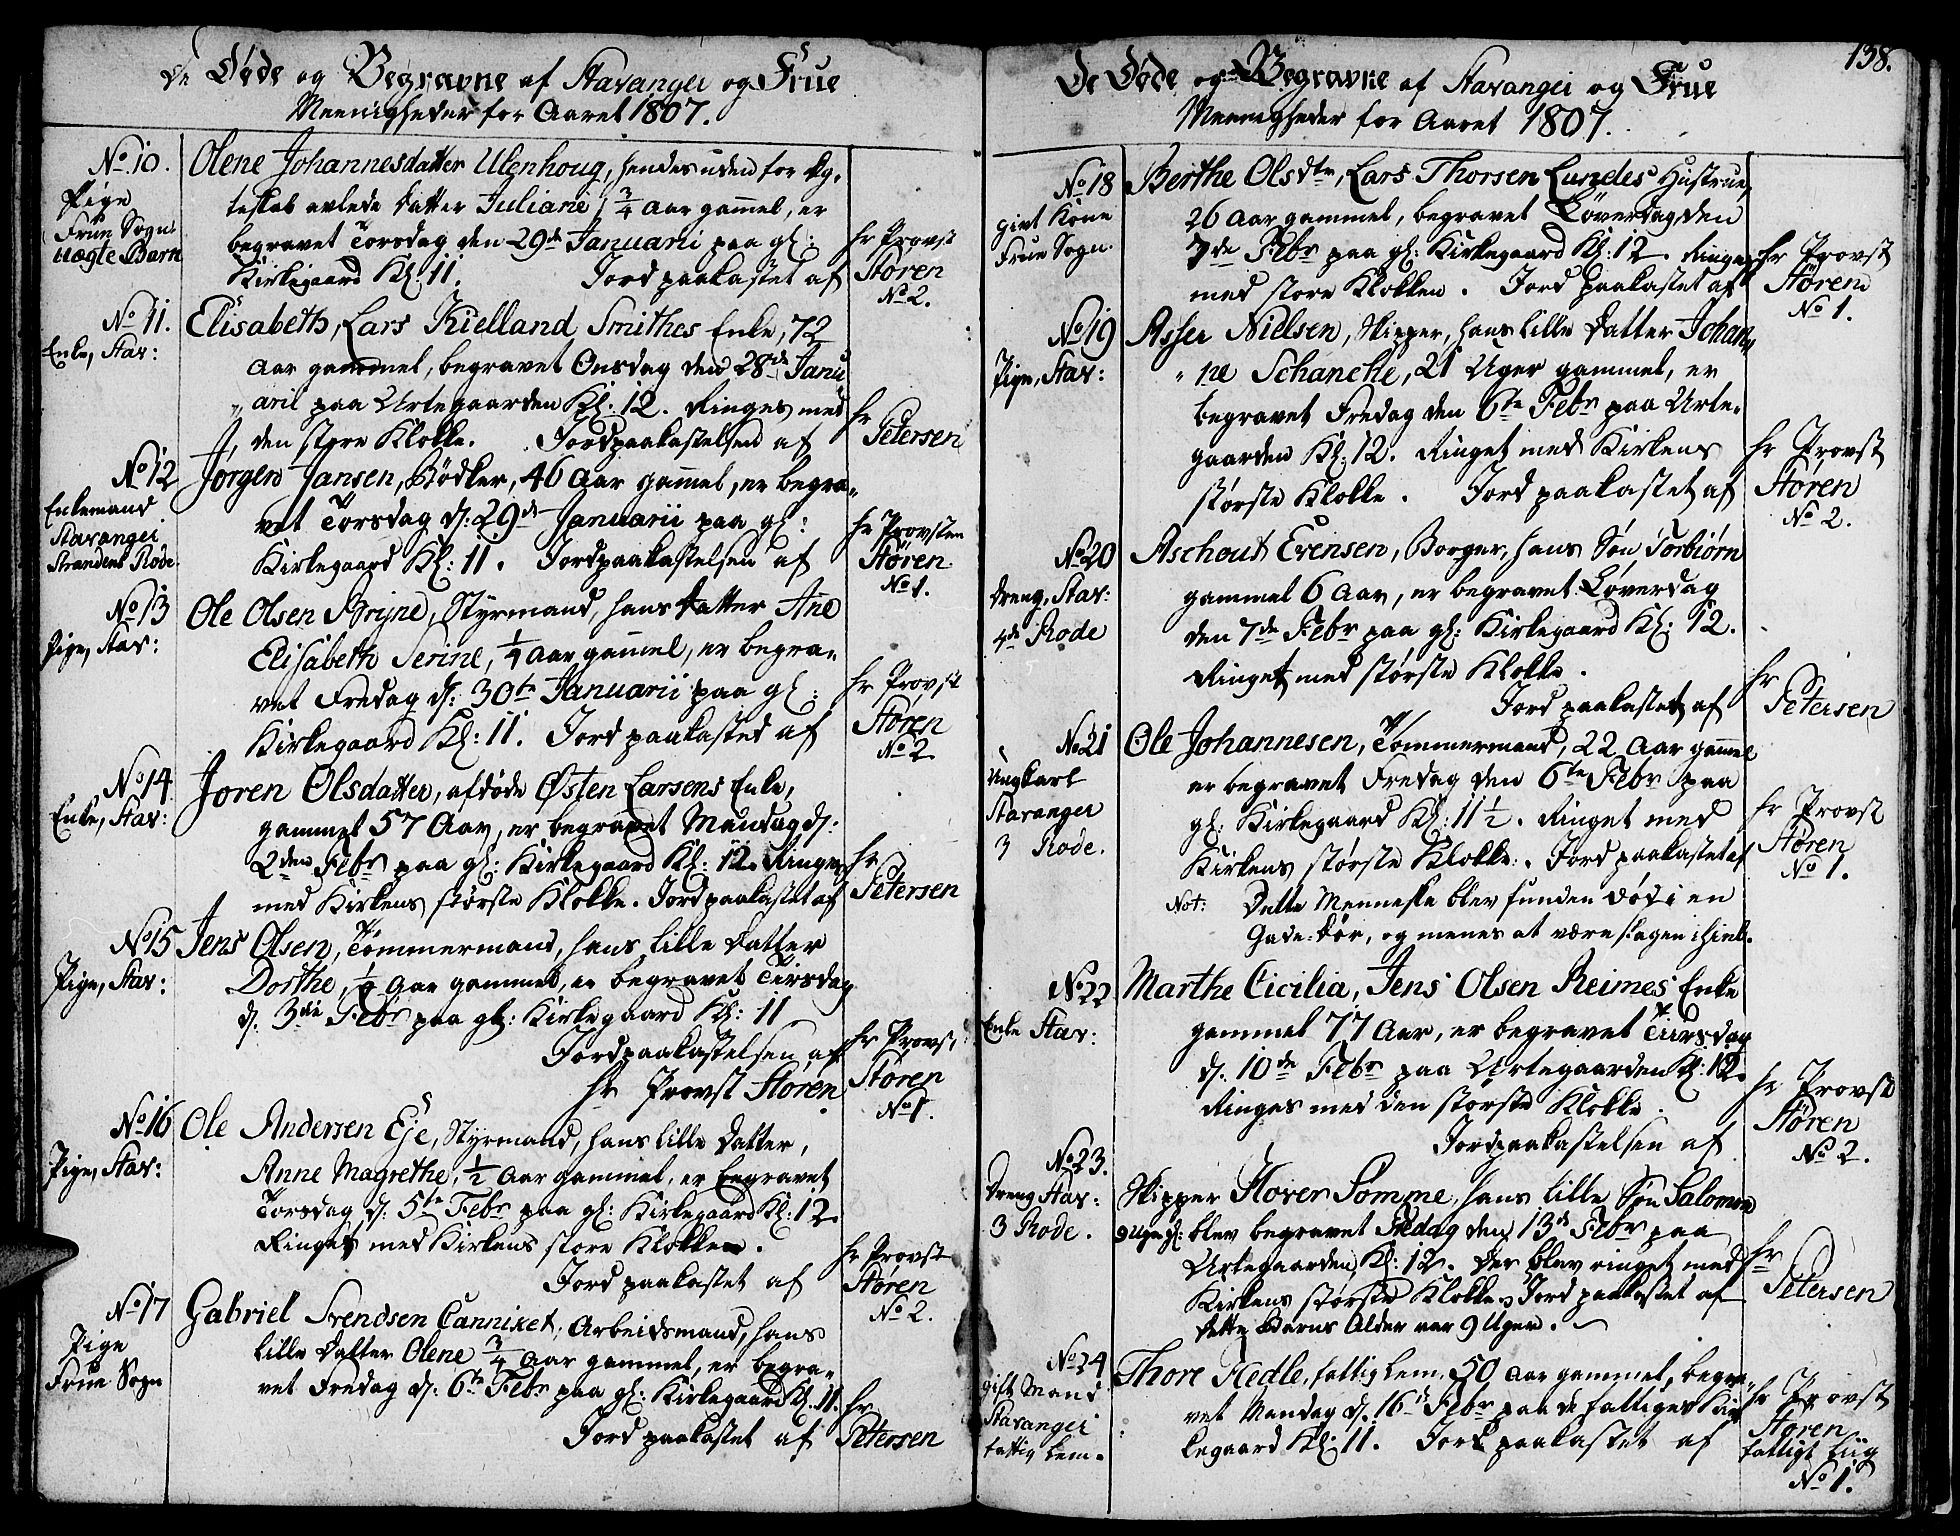 De Døde og Begravne af Stavanger og Frue
Meenigheder for Aaret 1807.
No 10.
Pige
Frue Sogn
uægte Barn
Olene Johannesdatter Ulenhoug, hendes uden for Æg-
teskab avlede Datter Juliane, 3/4 Aar gammel, er
begravet Torsdag den 29de Januarii paa gl:
Kirkegaard Kl: 11. Jord paakastet af
Hr Provst
Støren
No 2.
No 11.
Enke, Stav:
Elisabeth, Lars Kielland Smithes Enke, 72
Aar gammel, begravet Onsdag den 28de Janu
„arii paa Urtegaarden Kl: 12. Ringes med
den store Klokke. Jordpaakastelsen af
Hr
Petersen
No 12
Enkemand
Stavanger
Strandens Rode
Jørgen Jansen, Bødker, 46 Aar gammel, er begra-
vet Torsdag d: 29de Januarii paa gl:
Kirkegaard Kl: 11. Jordpaakastelsen af
Hr Provsten
Støren
No 1.
No 13
Pige, Stav:
Ole Olsen Bryne, Styrmand, hans Datter Ane
Elisabeth Serine, 1/4 Aar gammel, er begra-
vet Fredag d: 30te Januarii paa gl:
Kirkegaard Kl: 11. Jord paakasted af
Hr Provst
Støren
No 2
No 14
Enke, Stav:
Joren Olsdatter, afdøde Østen Larsens Enke,
gammel 57 Aar, er begravet Mandag d:
2den Febr paa gl: Kirkegaard Kl: 12. Ringes
med Kirkens største Klokke. Jordpaakastet af
Hr
Petersen
No 15
Pige, Stav:
Jens Olsen, Tømmermand, hans lille Datter
Dorthe, Aar gammel, er begravet Tirsdag
d. 3die Febr paa gl: Kirkegaard Kl: 11
Jordpaakastelsen af
Hr Provst Støren
Hr Provst
Støren
No 1.
No 16
Pige, Stav:
Ole Andersen Eje, Styrmand, hans lille Datter,
Anne Magrethe, 1/2 Aar gammel, er begravet
Torsdag d: 5te Febr paa gl: Kirkegaard Kl: 12
Ringet med Kirkens store Klokke.
Jord paakastet af
Hr Provst
Støren
No 2.
No 17
Pige
Frue Sogn
Gabriel Svendsen Canniket, Arbeidsmand, hans
lille Datter Olene 3/4 Aar gammel, er begra-
vet Fredag d: 6te Febr paa gl: Kirkegaard Kl. 11.
Jord paakastet af
Hr
Petersen
138.
De Døde og Begravne af Stavanger og Frue
Meenigheder for Aaret 1807.
No 18
givt Kone
Frue Sogn.
Berthe Olsdtr, Lars Thorsen Lundes Hustrue,
26 Aar gammel, begravet Løverdag den
7de Febr paa gl: Kirkegaard Kl: 12. Ringes
med store Klokken. Jord paakastet af
Hr Provst
Støren
No 1.
No 19
Pige, Stav:
Asser Nielsen, Skipper, hans lille Datter Johan„
„ne Schanche, 21 Uger gammel, er
begravet Fredag den 6te Febr paa Urte-
gaarden Kl: 12. Ringet med Kirkens
største Klokke. Jord paakastet af
Hr Provst
Støren
No 2.
No 20
Dreng, Stav:
4de Rode
Aschout Evensen, Borger, hans Søn Torbiørn
gammel 6 Aar, er begravet Løverdag
den 7de Febr paa gl: Kirkegaard Kl: 12.
Ringet med største Klokke.
Jord paakastet af
Hr
Petersen
No 21
Ungkarl
Stavanger
3 Rode.
Ole Johannesen, Tømmermand, 22 Aar gammel
er begravet Fredag den 6te Febr paa
gl: Kirkegaard Kl: 11 1/2. Ringet med
Kirkens største Klokke. Jord paakastet af
Not: Dette Menneske blev funden død i en
Gade-Dør, og menes at være slagen ihiel.
Hr Provst
Støren
No 1.
No 22
Enke Stav:
Marthe Cicilia, Jens Olsen Reimes Enke
gammel 77 Aar, er begravet Tirsdag
d. 10de Febr paa Urtegaarden Kl: 12.
Ringes med den største Klokke.
Jordpaakastelsen af
Hr Provst
Støren
No 2.
No 23.
Dreng Stav:
3 Rode.
Skipper Hover Somme, hans lille Søn Salomon
9 Uger gl: blev begravet Fredag den 13de Febr paa
Urtegaarden, Kl: 12. Der blev ringet med
Kirkens største Klokke. Jord paakastet af
Dette Barns Alder var 9 Uger.
Hr
Petersen
No 24
gift Mand
Stavanger
fattig Lem.
Thore Hedle, fattig Lem, 50 Aar gammel, begra-
vet Mandag d. 16de Febr paa de fattiges Kir
kegaard Kl: 11. Jord paakastet af
Hr Provst
Støren
fattigt Liig
No 1.